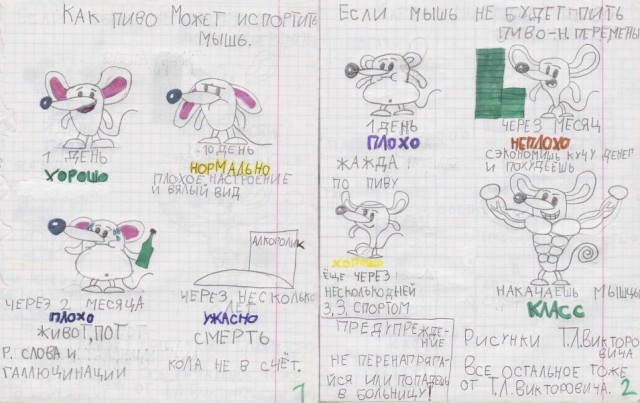 КАК ПИВО МОЖЕТ ИСПОРТИТЬ
МЫШЬ.
1 ДЕНЬ
ХОРОШО
10 ДЕНЬ
НОРМАЛЬНО
ПЛОХОЕ НАСТРОЕНИЕ
И ВЯЛЫЙ ВИД
ЧЕРЕЗ 2 МЕСЯЦА
ПЛОХО
ЖИВОТ, ПОТ
Р. СЛОВА И
ГАЛЛЮЦИНАЦИИ
АЛКОГОЛИК
ЧЕРЕЗ НЕСКОЛЬКО
ЛЕТ
УЖАСНО
СМЕРТЬ
КОЛА НЕ В СЧЁТ.
1
ЕСЛИ МЫШЬ НЕ БУДЕТ ПИТЬ
ПИВО-Н. ПЕРЕМЕНЫ
1 ДЕНЬ
ПЛОХО
ЖАЖДА
ПО ПИВУ
ЧЕРЕЗ МЕСЯЦ
НЕПЛОХО
СЭКОНОМИШЬ КУЧУ ДЕНЕГ
И ПОХУДЕЕШЬ
ХОРОШО
ЕЩЕ ЧЕРЕЗ
НЕСКОЛЬКО ДНЕЙ
З,З, СПОРТОМ
НАКАЧАЕШЬ МЫШЦЫ
КЛАСС
ПРЕДУПРЕЖДЕ-
НИЕ
НЕ ПЕРЕНАПРЯГА-
ЙСЯ ИЛИ ПОПАДЕШЬ
В БОЛЬНИЦУ!
РИСУНКИ Т.Л.ВИКТОРО
ВИЧА
ВСЕ ОСТАЛЬНОЕ ТОЖЕ
ОТ Т.Л.ВИКТОРОВИЧА.
2